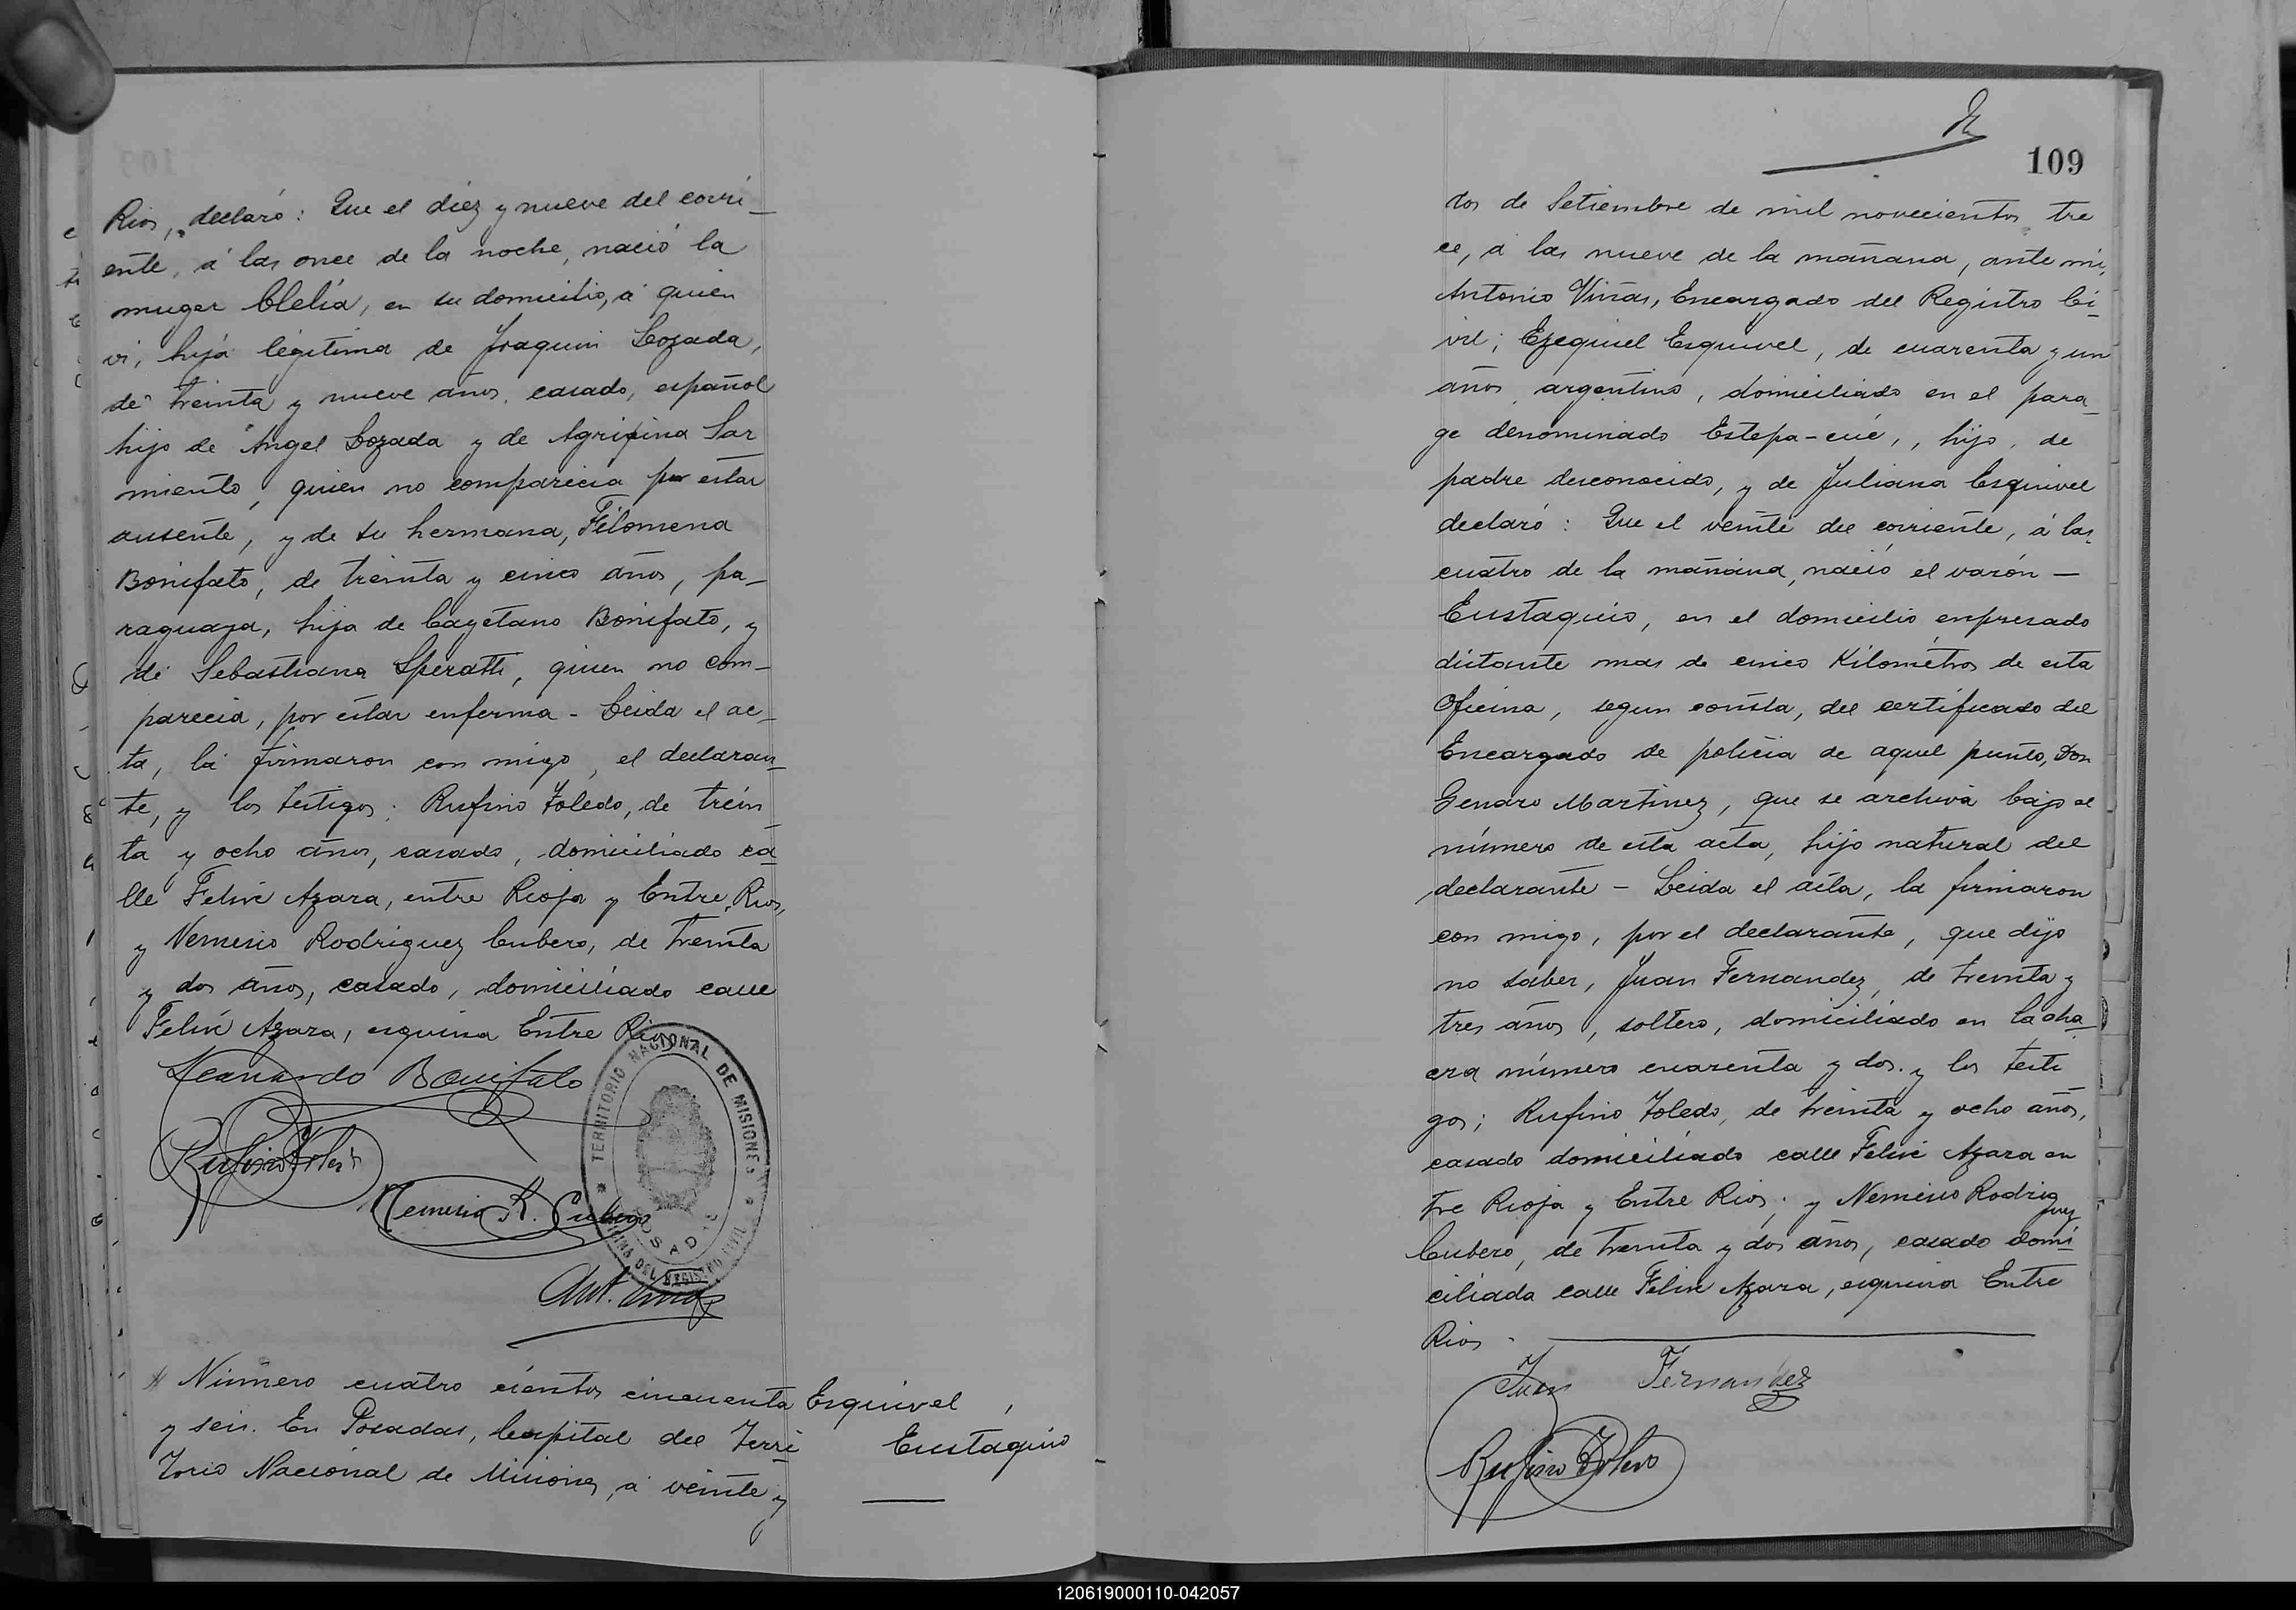 Rios, declaró: Que el diez y nueve del corri_
ente, á las once de la noche, nació la
muger Clelia, en su domicilio, á quien
vi, hija légitima de Joaquin Lozada,
de treinta y nueve años, casado, español
hijo de Angel Lozada y de Agripina Sar
miento, quien no comparecia por estar
ausente, y de su hermana, Filomena
Bonifato, de treinta y cinco años, pa_
raguaya, hija de Cayetano Bonifato, y
de Sebastiana Speratti, quien no com_
parecia, por estar enferma - Leida el ac_
ta, la firmaron con migo, el declaran_
te, y los testigos: Rufino Toledo, de trein
ta y ocho años, casado, domiciliado ca_
lle Felix Azara, entre Rioja y Entre Rios,
y Nemesio Rodriguez Cubero, de treinta
y dos años, casado, domiciliado calle
Felix Azara, esquina Entre Rios
Leonardo Bonifato
Rufino Toledo
Nemesio R. Cubero
TERRITORIO NACIONAL DE MISIONES
OFICINA DEL REGISTRO CIVIL
POSADAS
Ant. Viñas
Número cuatro cientos cincuenta
y seis. En Posadas, Capital del Terri_
torio Nacional de Misiones, á veinte y
Esquivel
Eustaquio
109
dos de Setiembre de mil novecientos tre
ce, á las nueve de la mañana, ante mi,
Antonio Viñas, Encargado del Registro Ci_
vil; Ezequiel Esquivel, de cuarenta y un
años, argentino, domiciliado en el para_
ge denominado Estepa-cué, hijo de
padre desconocido, y de Juliana Esquivel
declaró: Que el veinte del corriente, á las
cuatro de la mañana, nació el varón —
Eustaquio, en el domicilio enpresado
distante mas de cinco Kilometros de esta
Oficina, segun consta, del certificado del
Encargado de policia de aquel punto, Don
Genaro Martinez, que se archiva bajo el
número de esta acta, hijo natural del
declarante - Leida el acta, la firmaron
con migo, por el declarante, que dijo
no saber, Juan Fernandez, de treinta y
tres años, soltero, domiciliado en la cha_
cra número cuarenta y dos. y los testi
gos; Rufino Toledo, de treinta y ocho años,
casado domiciliado calle Felix Azara en
tre Rioja y Entre Rios; y Nemesio Rodriguez
Cubero, de treinta y dos años, casado domi_
ciliada calle Felix Azara, esquina Entre
Rios -
Juan Fernandez
Rufino Toledo
120619000110-042057